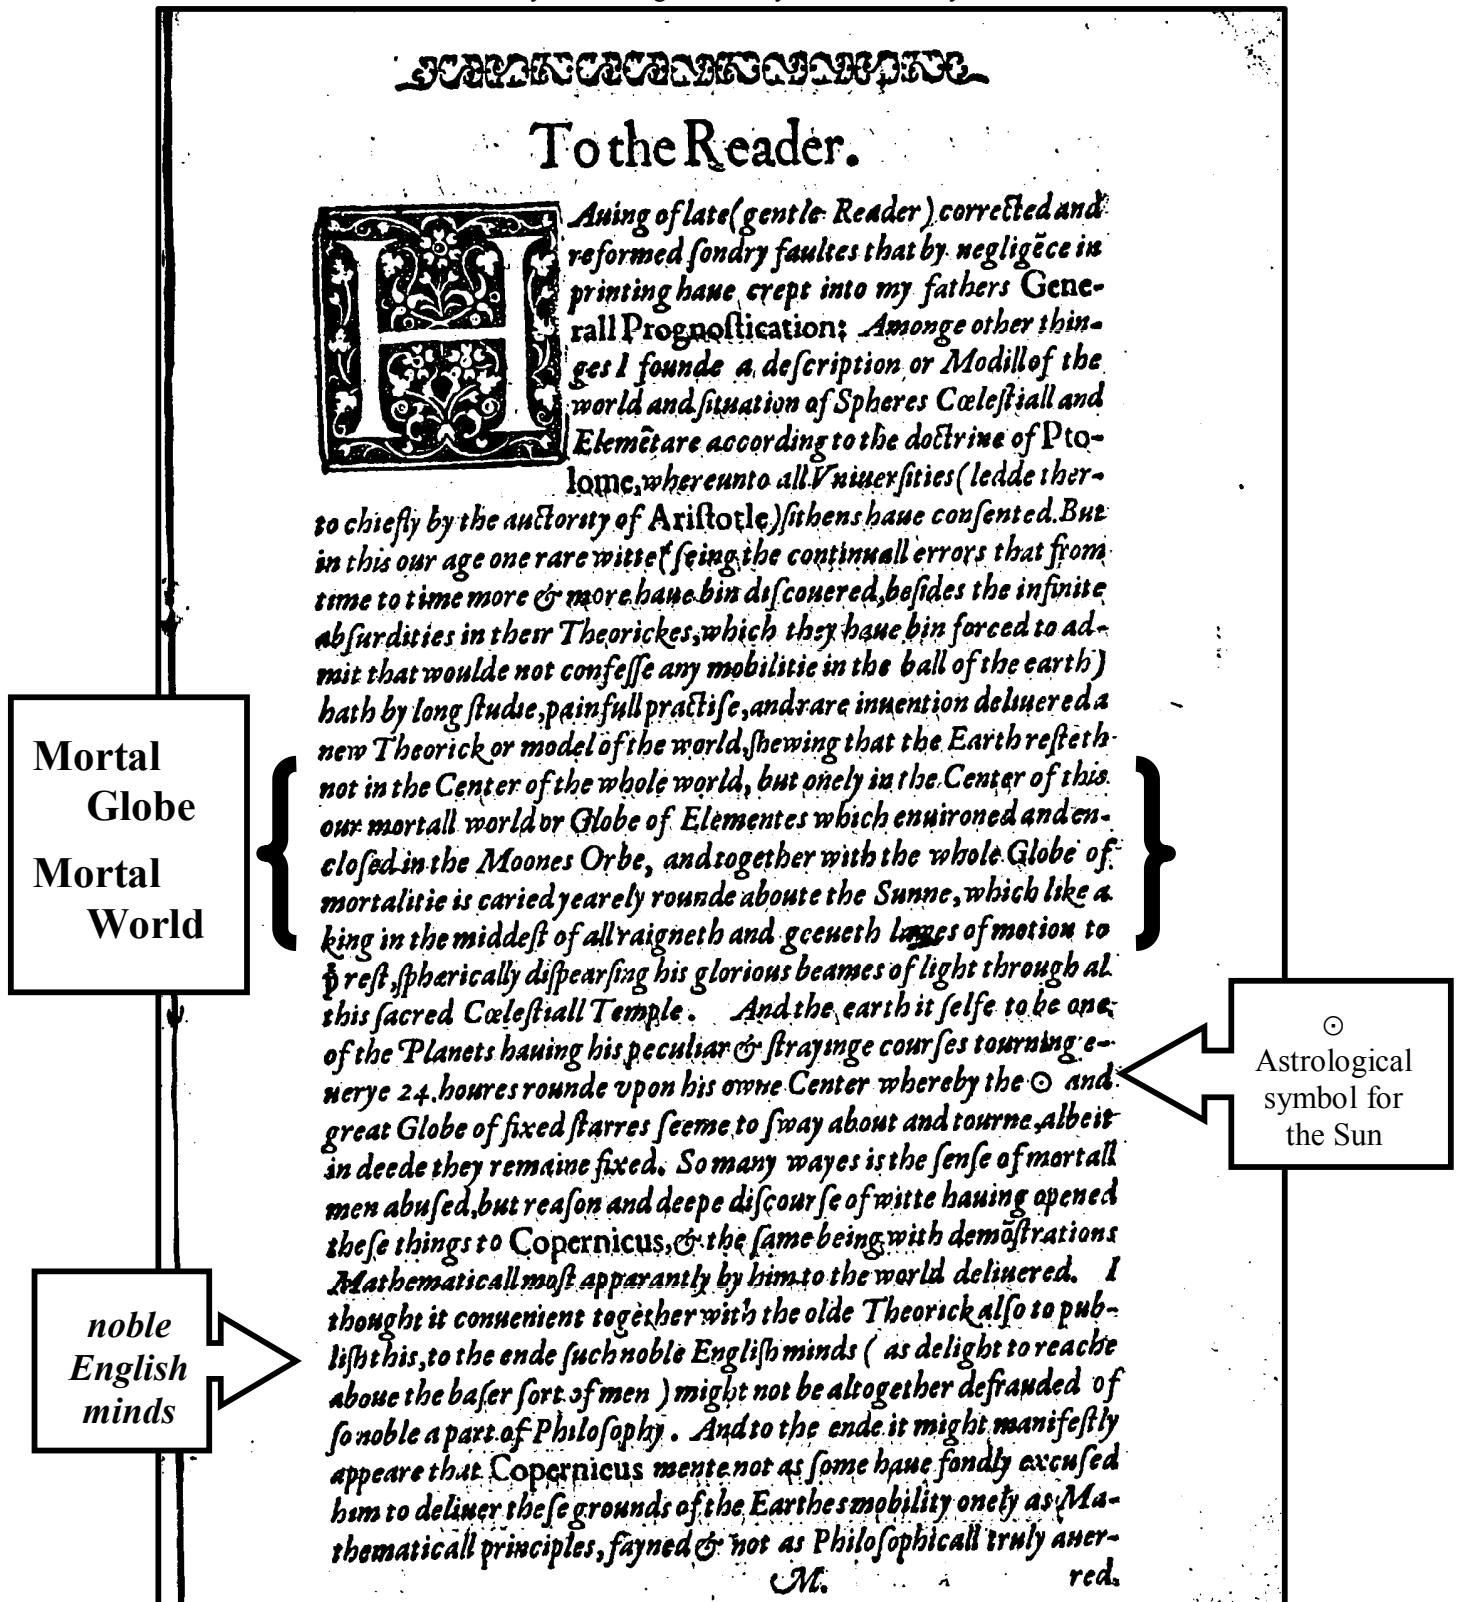 To the Reader.
HAuing of late (gentle Reader) corrected and
reformed ſondry faultes that by negligēce in
printing haue crept into my fathers Gene-
rall Prognoſtication: Amonge other thin-
ges I founde a deſcription or Modill of the
world and ſituation of Spheres Cœleſtiall and
Elemētare according to the doctrine of Pto-
lome, whereunto all Vniuerſities (ledde ther-
to chiefly by the auctority of Ariſtotle) ſithens haue conſented. But
in this our age one rare witte (ſeing the continuall errors that from
time to time more & more haue bin diſcouered, beſides the infinite
abſurdities in their Theorickes, which they haue bin forced to ad-
mit that woulde not confeſſe any mobilitie in the ball of the earth)
hath by long ſtudie, painfull practiſe, and rare inuention deliuered a
new Theorick or model of the world, ſhewing that the Earth reſteth
not in the Center of the whole world, but onely in the Center of this
our mortall world or Globe of Elementes which enuironed and en-
cloſed in the Moones Orbe, and together with the whole Globe of
mortalitie is caried yearely rounde aboute the Sunne, which like a
king in the middeſt of all raigneth and geeueth lawes of motion to
þͤ reſt, ſphærically diſpearſing his glorious beames of light through al
this ſacred Cœleſtiall Temple. And the earth it ſelfe to be one
of the Planets hauing his peculiar & ſtrayinge courſes tourning e-
uerye 24. houres rounde vpon his owne Center whereby the ☉ and
great Globe of fixed ſtarres ſeeme to ſway about and tourne, albeit
in deede they remaine fixed. So many wayes is the ſenſe of mortall
men abuſed, but reaſon and deepe diſcourſe of witte hauing opened
theſe things to Copernicus, & the ſame being with demōſtrations
Mathematicall moſt apparantly by him to the world deliuered. I
thought it conuenient together with the olde Theorick alſo to pub-
liſh this, to the ende ſuch noble Engliſh minds (as delight to reache
aboue the baſer ſort of men) might not be altogether defrauded of
ſo noble a part of Philoſophy. And to the ende it might manifeſtly
appeare that Copernicus mente not as ſome haue fondly excuſed
him to deliuer theſe grounds of the Earthes mobility onely as Ma-
thematicall principles, fayned & not as Philoſophicall truly auer-
M. red.
Mortal
Globe
Mortal
World
☉
Astrological
symbol for
the Sun
noble
English
minds